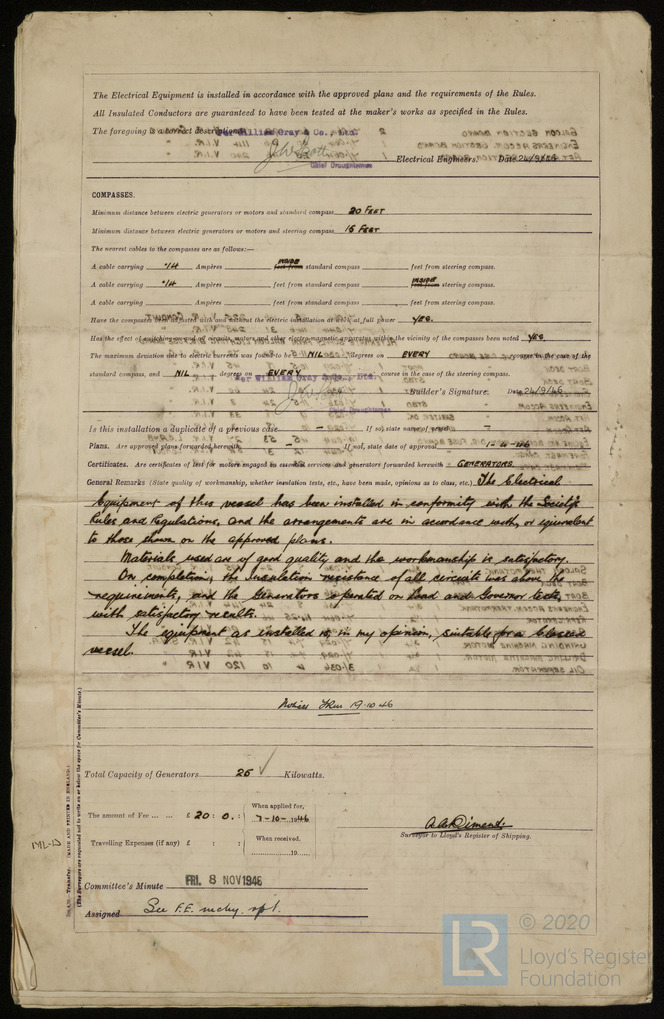 The Electrical Equipment is installed in accordance with the approved plans and the requirements of the Rules.
All Insulated Conductors are guaranteed to have been tested at the maker's works as specified in the Rules.
The foregoing is a correct description.
For William Gray & Co., Ltd.
Chief Draughtsman
Electrical Engineers. Date 24/9/46
COMPASSES.
Minimum distance between electric generators or motors and standard compass 20 FEET
Minimum distance between electric generators or motors and steering compass 15 FEET
The nearest cables to the compasses are as follows:—
A cable carrying ·14 Ampères INSIDE feet from standard compass feet from steering compass.
A cable carrying ·14 Ampères feet from standard compass INSIDE feet from steering compass.
A cable carrying Ampères feet from standard compass feet from steering compass.
Have the compasses been adjusted with and without the electric installation at work at full power YES.
Has the effect of switching on and off circuits, motors and other electro-magnetic apparatus within the vicinity of the compasses been noted YES.
The maximum deviation due to electric currents was found to be NIL degrees on EVERY course in the case of the
standard compass, and NIL degrees on EVERY course in the case of the steering compass.
For William Gray & Co., Ltd.
Chief Draughtsman
Builder's Signature. Date 24/9/46
Is this installation a duplicate of a previous case – If so, state name of vessel –
Plans. Are approved plans forwarded herewith – If not, state date of approval
Certificates. Are certificates of test for motors engaged on essential services and generators forwarded herewith GENERATORS.
General Remarks (State quality of workmanship, whether insulation tests, etc., have been made, opinions as to class, etc.) The Electrical
Equipment of this vessel has been installed in conformity with the Society's
Rules and Regulations, and the arrangements are in accordance with, or equivalent
to those shown on the approved plans.
Materials used are of good quality and the workmanship is satisfactory.
On completion, the Insulation resistance of all circuits was above the
requirements, and the Generators operated on Load and Governor tests,
with satisfactory results.
The equipment as installed is, in my opinion, suitable for a Classed
vessel.
Noted 19·10·46
Total Capacity of Generators 25 Kilowatts.
The amount of Fee ... ... £ 20 : 0 :
When applied for,
7-10-1946
Travelling Expenses (if any) £ : :
When received,
19
Surveyor to Lloyd's Register of Shipping.
Committee's Minute FRI. 8 NOV 1946
Assigned See F.E. mchy. rpt.
(MADE AND PRINTED IN ENGLAND.)
(The Surveyors are requested not to write on or below the space for Committee's Minute.)
© 2020
LR
Lloyd's Register
Foundation